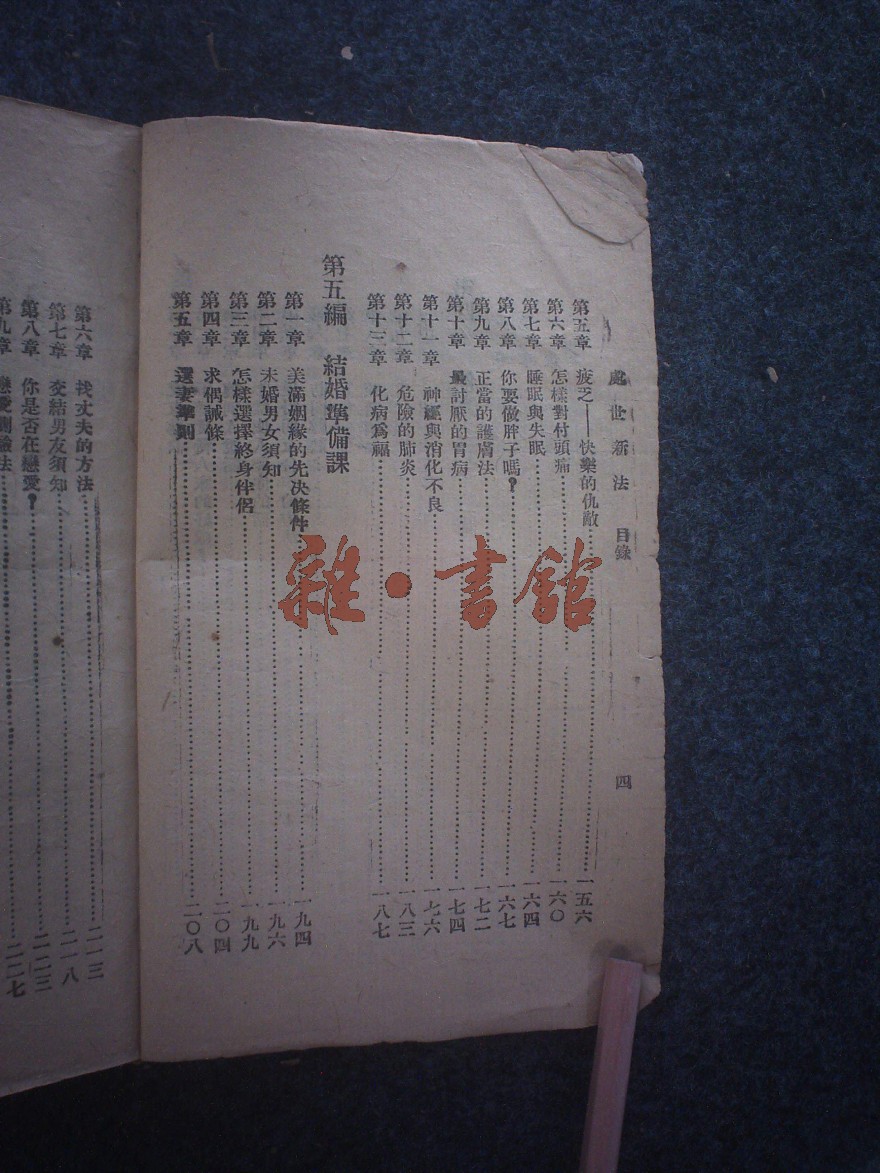 處世新法 目錄 四
第五章 疲乏——快樂的仇敵……一五六
第六章 怎樣對付頭痛……一六〇
第七章 睡眠與失眠……一六四
第八章 你要做胖子嗎？……一六七
第九章 正當的護膚法……一七二
第十章 最討厭的胃病……一七四
第十一章 神經與消化不良……一七六
第十二章 危險的肺炎……一八三
第十三章 化病爲福……一八七
第五編 結婚準備課
第一章 美滿姻緣的先決條件……一九四
第二章 未婚男女須知……一九六
第三章 怎樣選擇終身伴侶……一九九
第四章 求偶誡條……二〇四
第五章 選妻準則……二〇八
第六章 找丈夫的方法……二一三
第七章 交結男友須知……二一八
第八章 你是否在戀愛？……二二三
第九章 戀愛測驗法……二二七
雜·書館